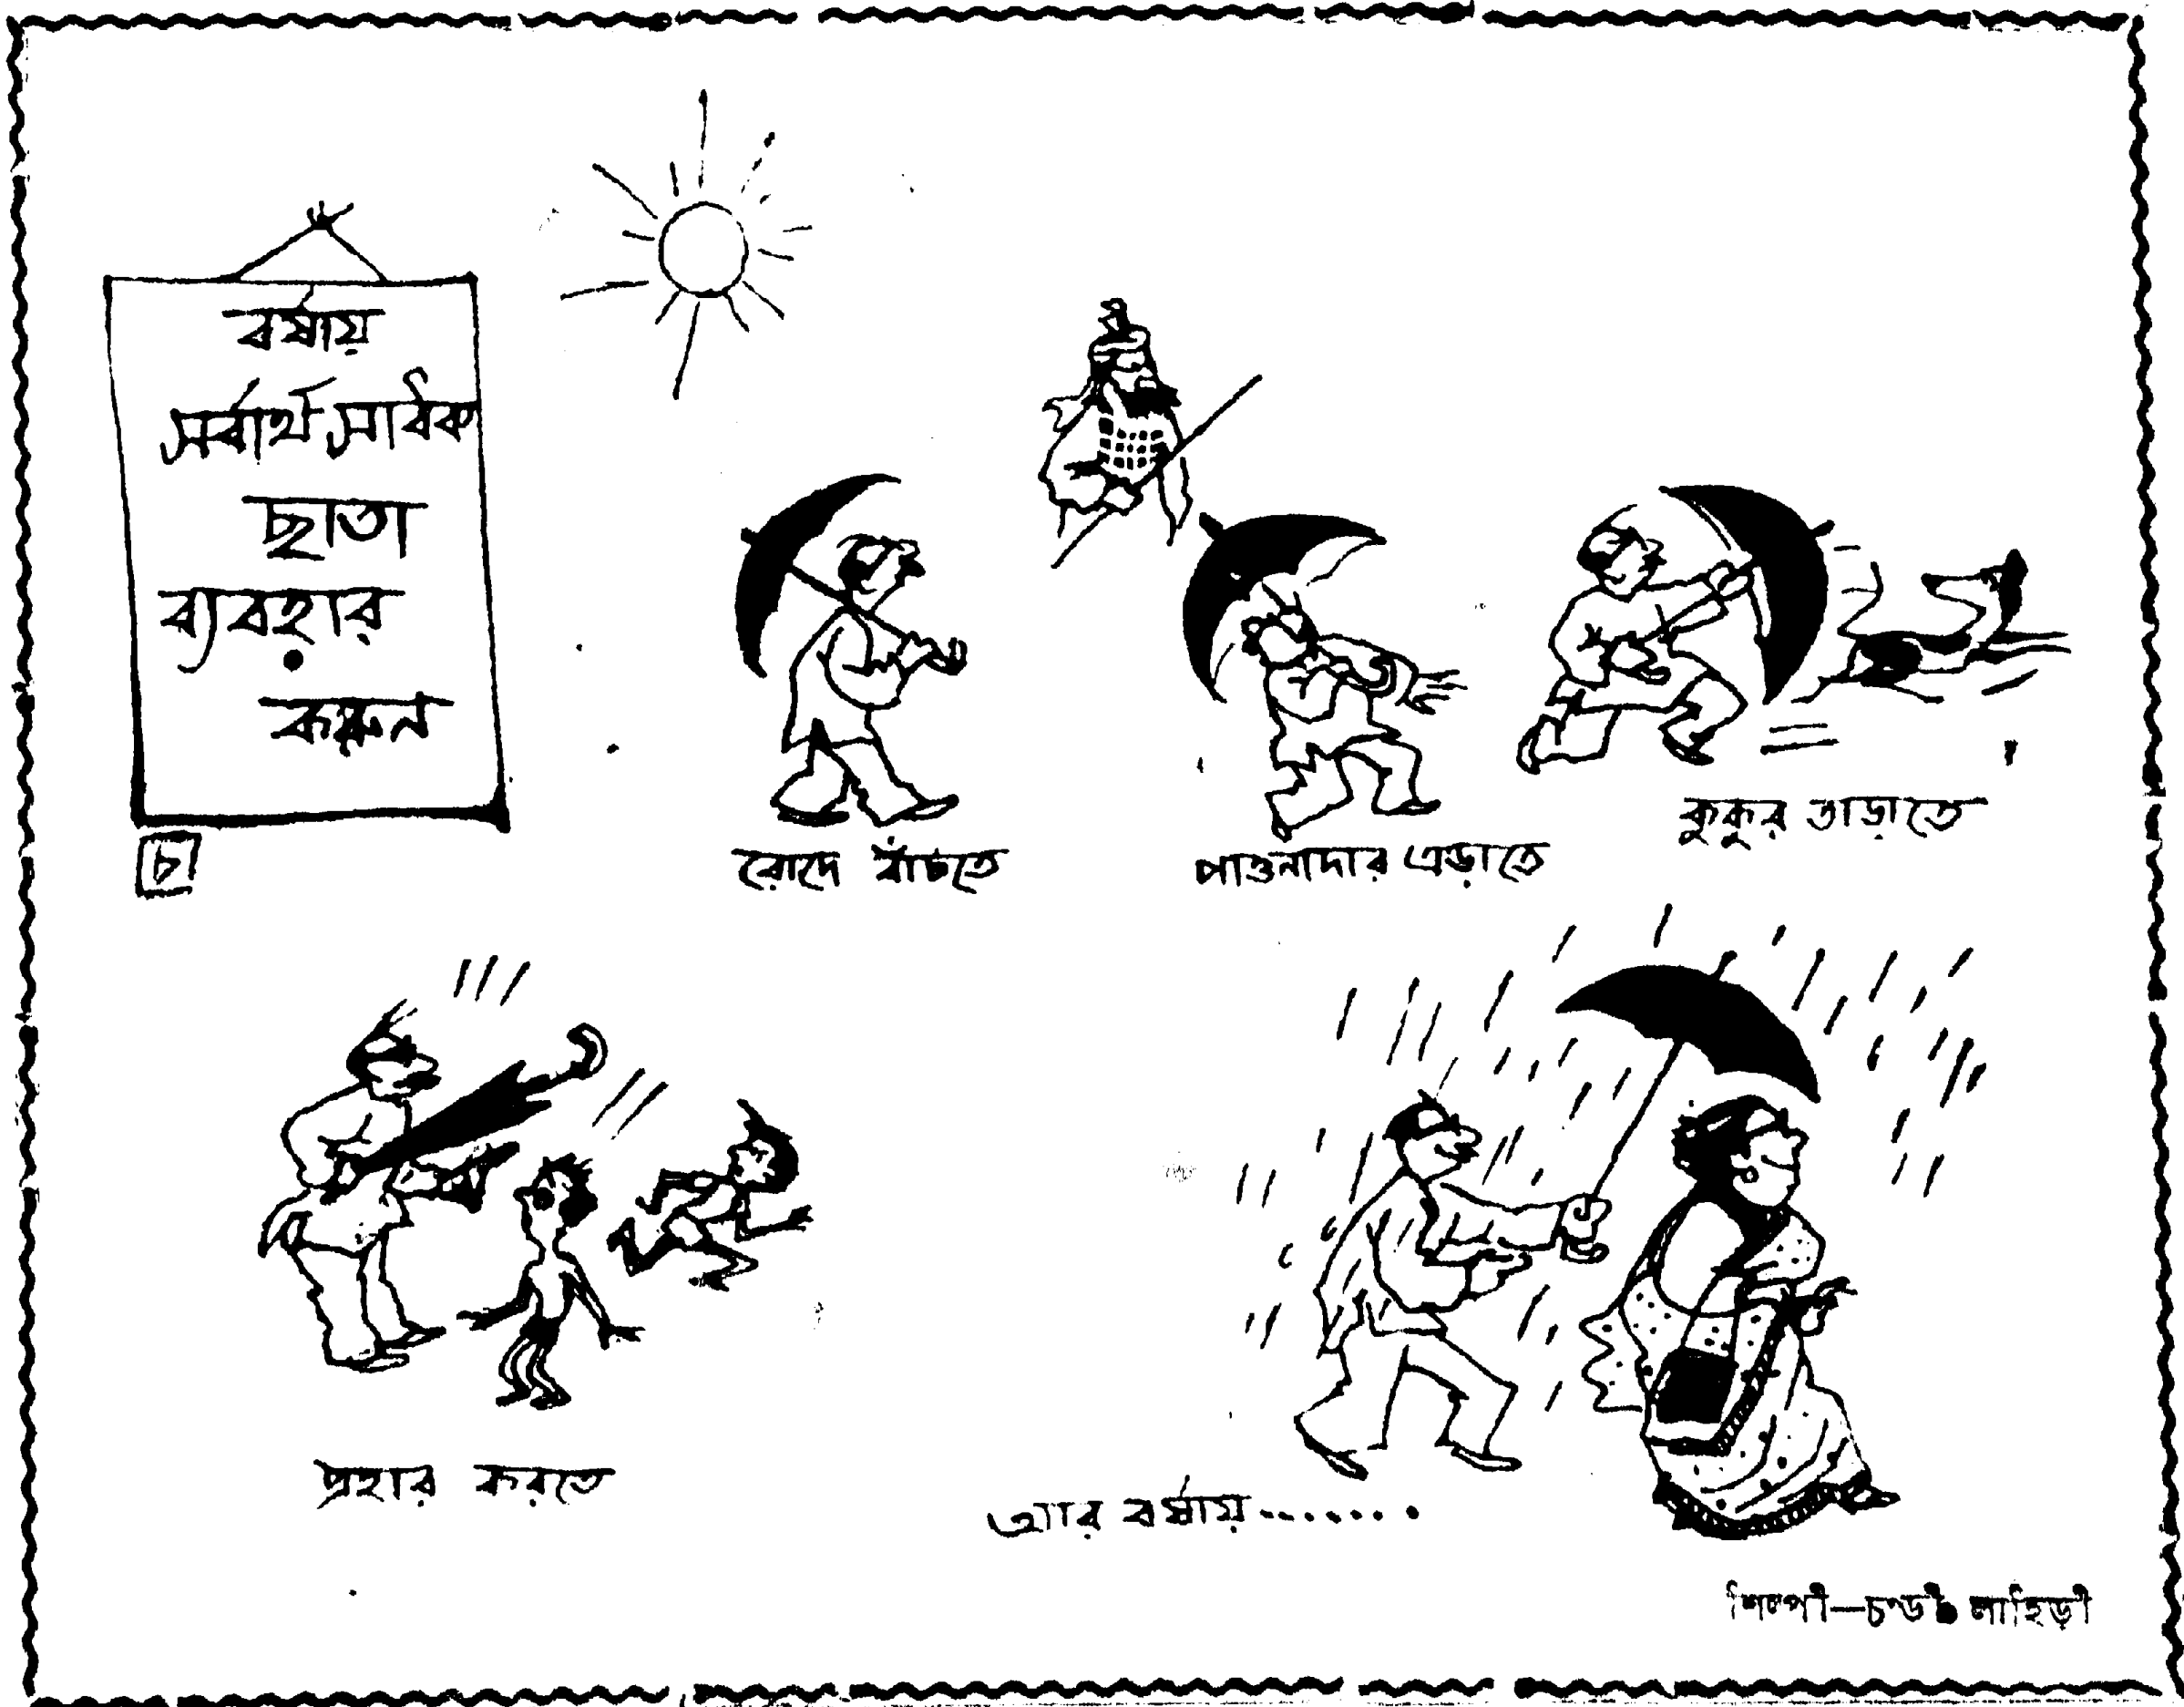 বর্ষায়
সর্বার্থ সাধক
ছাতা
ব্যবহার
করুন
চ
রোদে বাঁচতে
পাওনাদার এড়াতে
কুকুর তাড়াতে
প্রহার করতে
আর বর্ষায়........
শিল্পী—চন্ডী লাহিড়ী